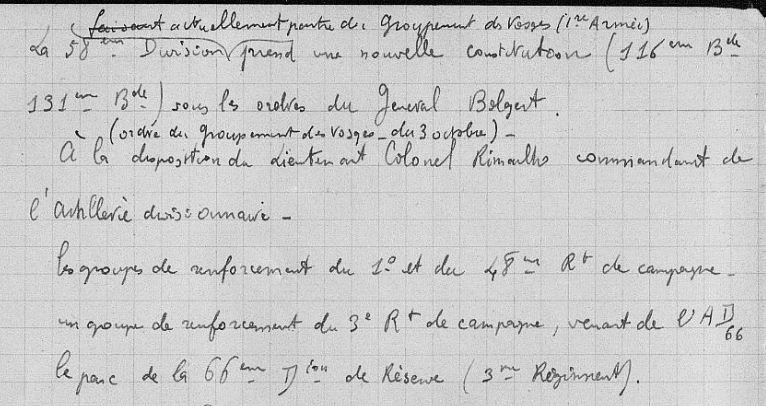 faisant actuellement partie du Groupement des Vosges (1re Armée)
La 58ème Division prend une nouvelle constitution (116ème Bde
131ème Bde) sous les ordres du Général Bolgert.
(ordre du groupement des Vosges - du 3 octobre) -
A la disposition du Lieutenant Colonel Rimailho commandant de
l'artillerie divisionnaire -
les groupes de renforcement du 1er et du 48ème Rt de campagne -
un groupe de renforcement du 3e Rt de campagne, venant de l'AD 66
le parc de la 66ème Dion de Réserve (3me Régiment).